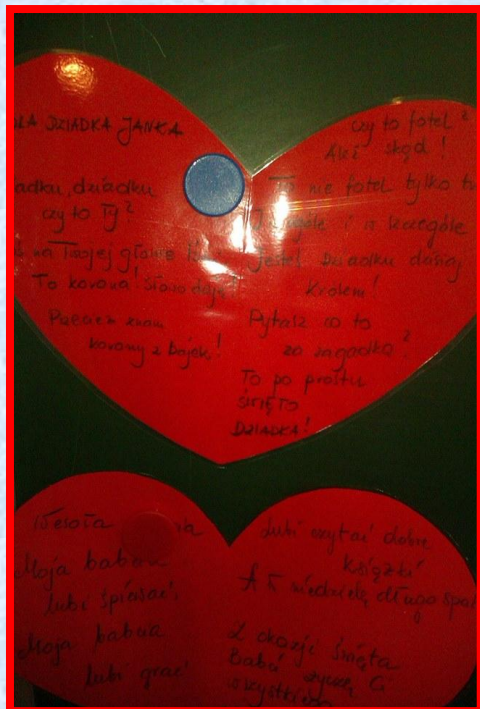 DLA DZIADKA JANKA
Dziadku, dziadku
czy to Ty?
na Twojej głowie
To korona! Słowo daję!
Przecież znam
korony z bajek!
czy to fotel?
Ależ skąd!
To nie fotel tylko
W ogóle i w szczególe
Jesteś Dziadku dzisiaj
Królem!
Pytasz co to
za zagadka?
To po prostu
ŚWIĘTO
DZIADKA!
Wesoła
Moja babcia
lubi śpiewać,
Moja babcia
lubi grać
Lubi czytać dobre
książki
A w niedzielę długo spać
Z okazji święta
Babci życzę Ci
wszystkiego